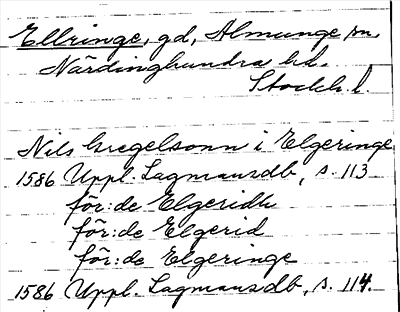 Ellringe, gd, Almunge sn,
Närdinghundra hd.
Stockh. l.
Nils Gregelsonn i Elgeringe
1586 Uppl. Lagmansdb, s. 113
för: de Elgeridh
för: de Elgerid
för: de Elgeringe
1586 Uppl. Lagmansdb, s. 114.